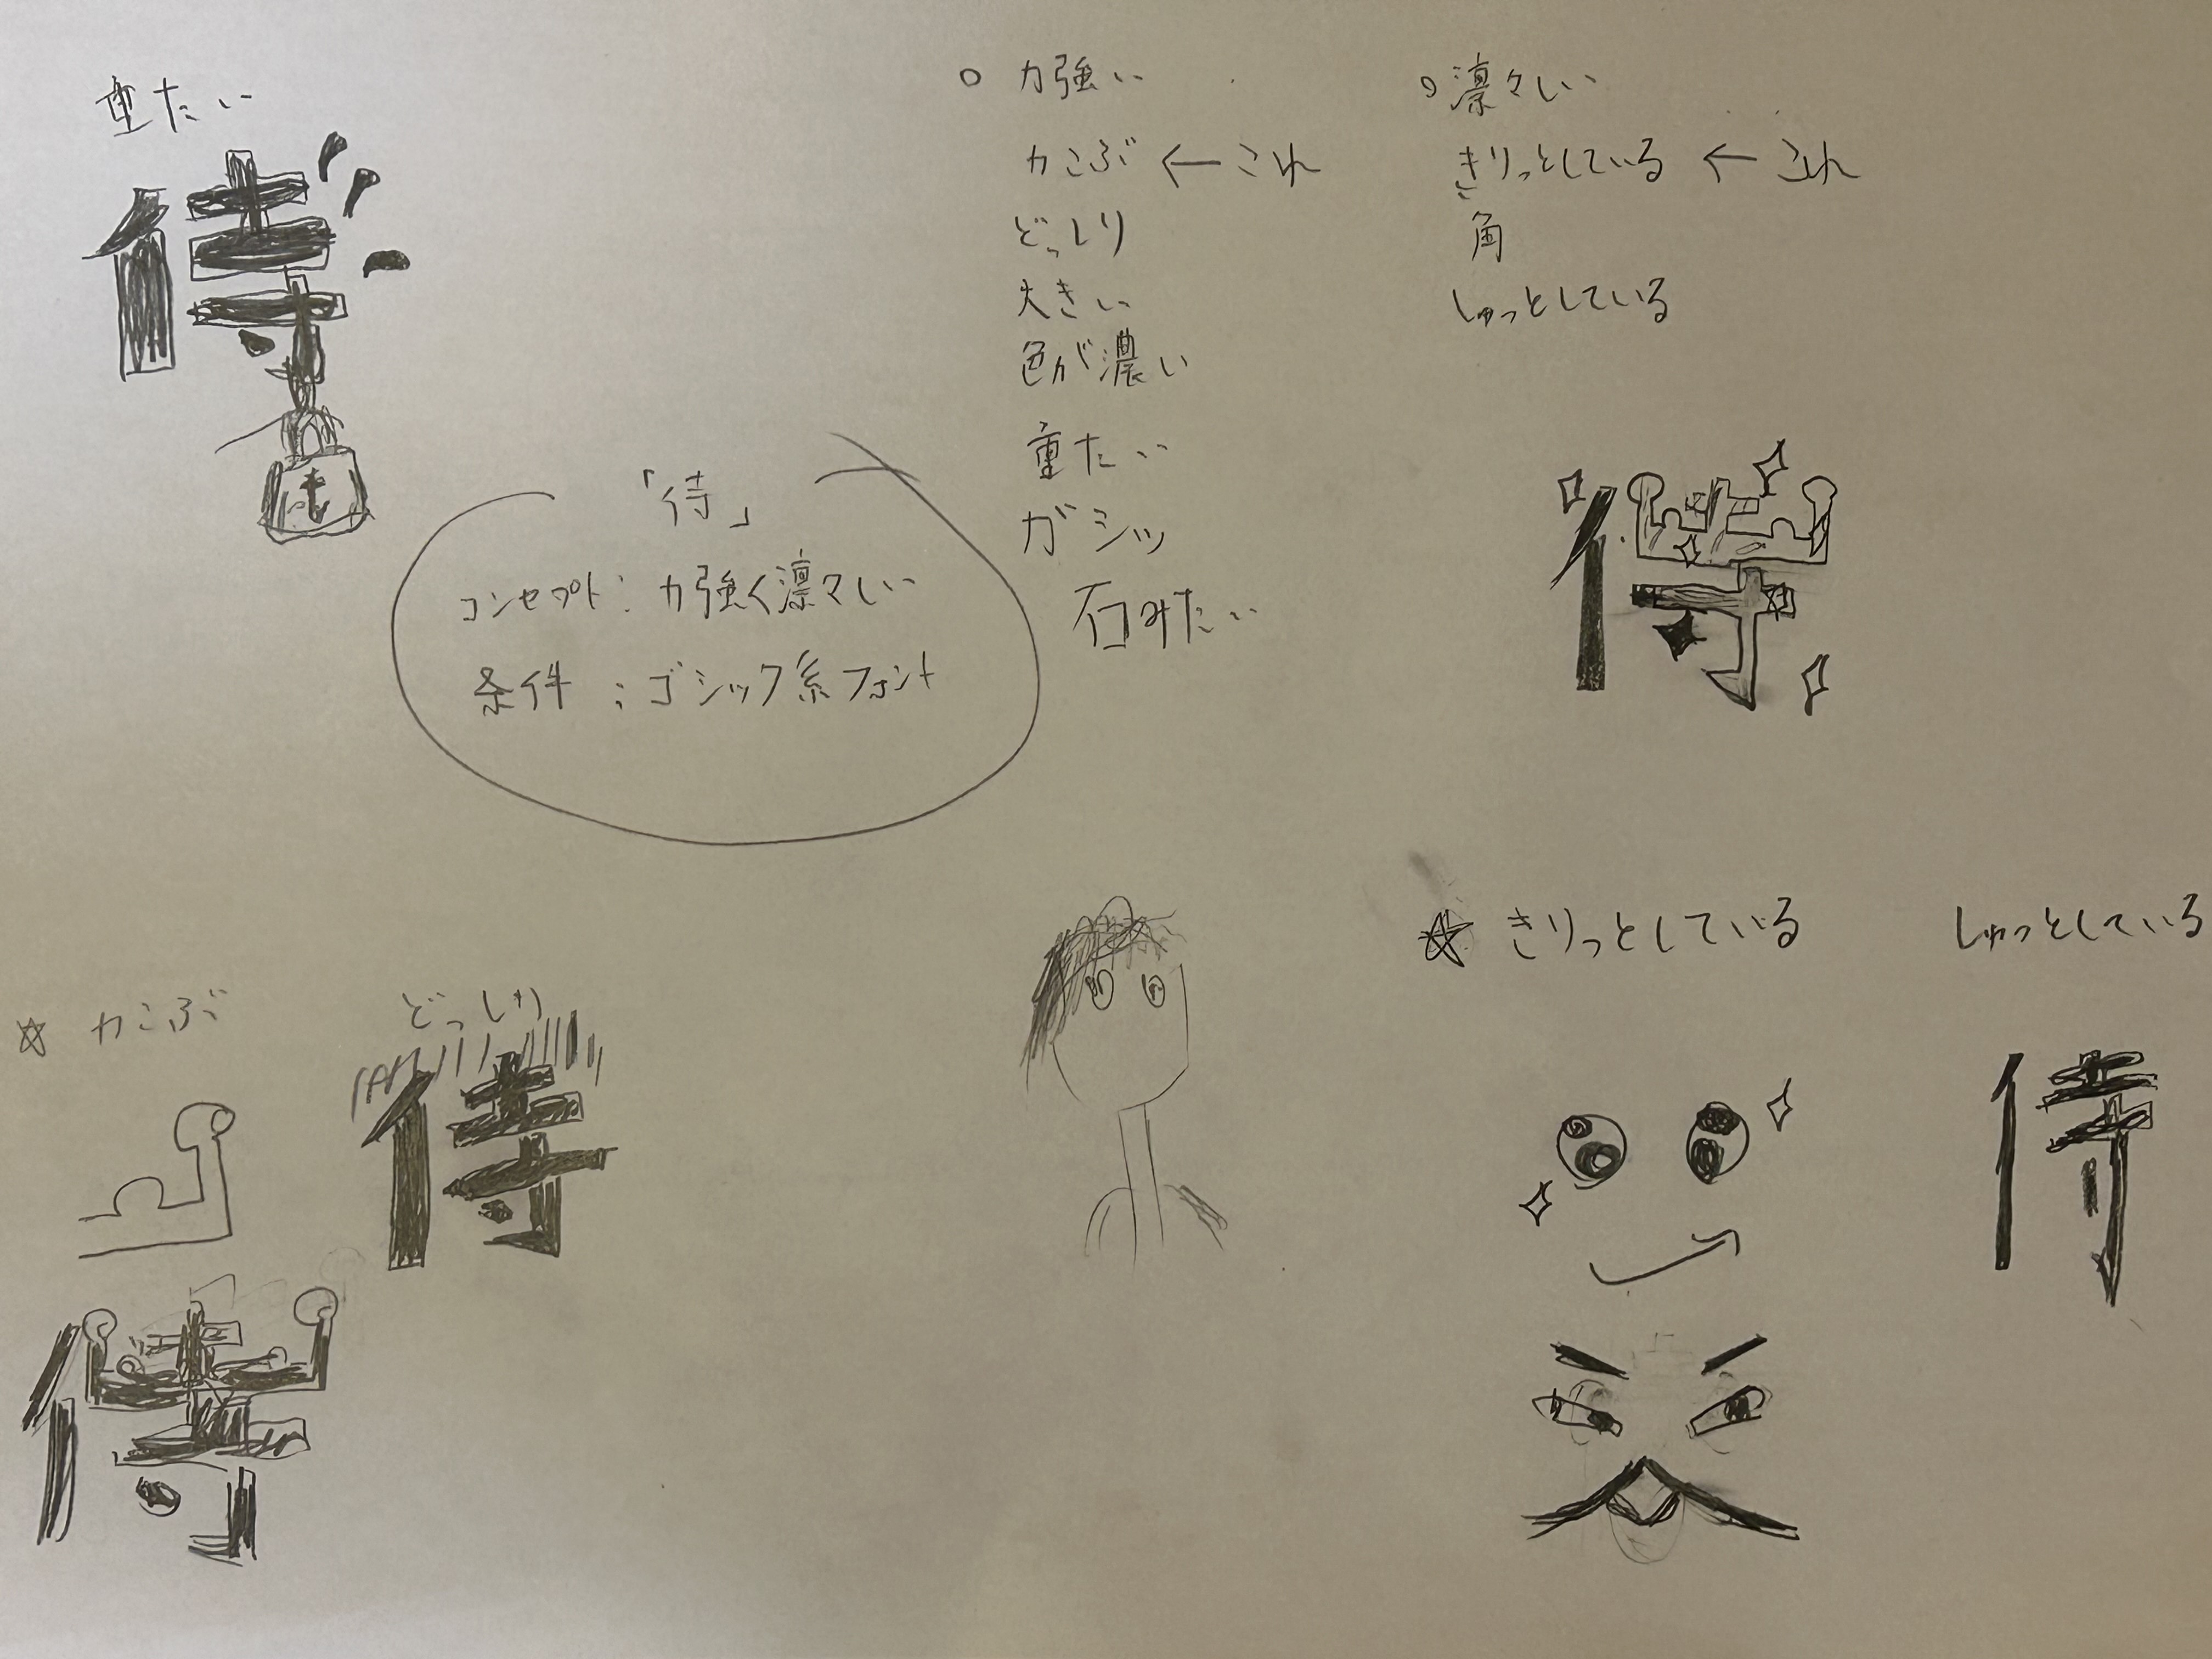 重たい
侍
重
「侍」
コンセプト：力強く凛々しい
条件：ゴシック系フォント
○ 力強い
力こぶ ← これ
どっしり
大きい
色が濃い
重たい
ガシッ
石みたい
○ 凛々しい
きりっとしている ← これ
角
しゅっとしている
侍
☆ 力こぶ
侍
どっしり
侍
☆ きりっとしている
しゅっとしている
侍